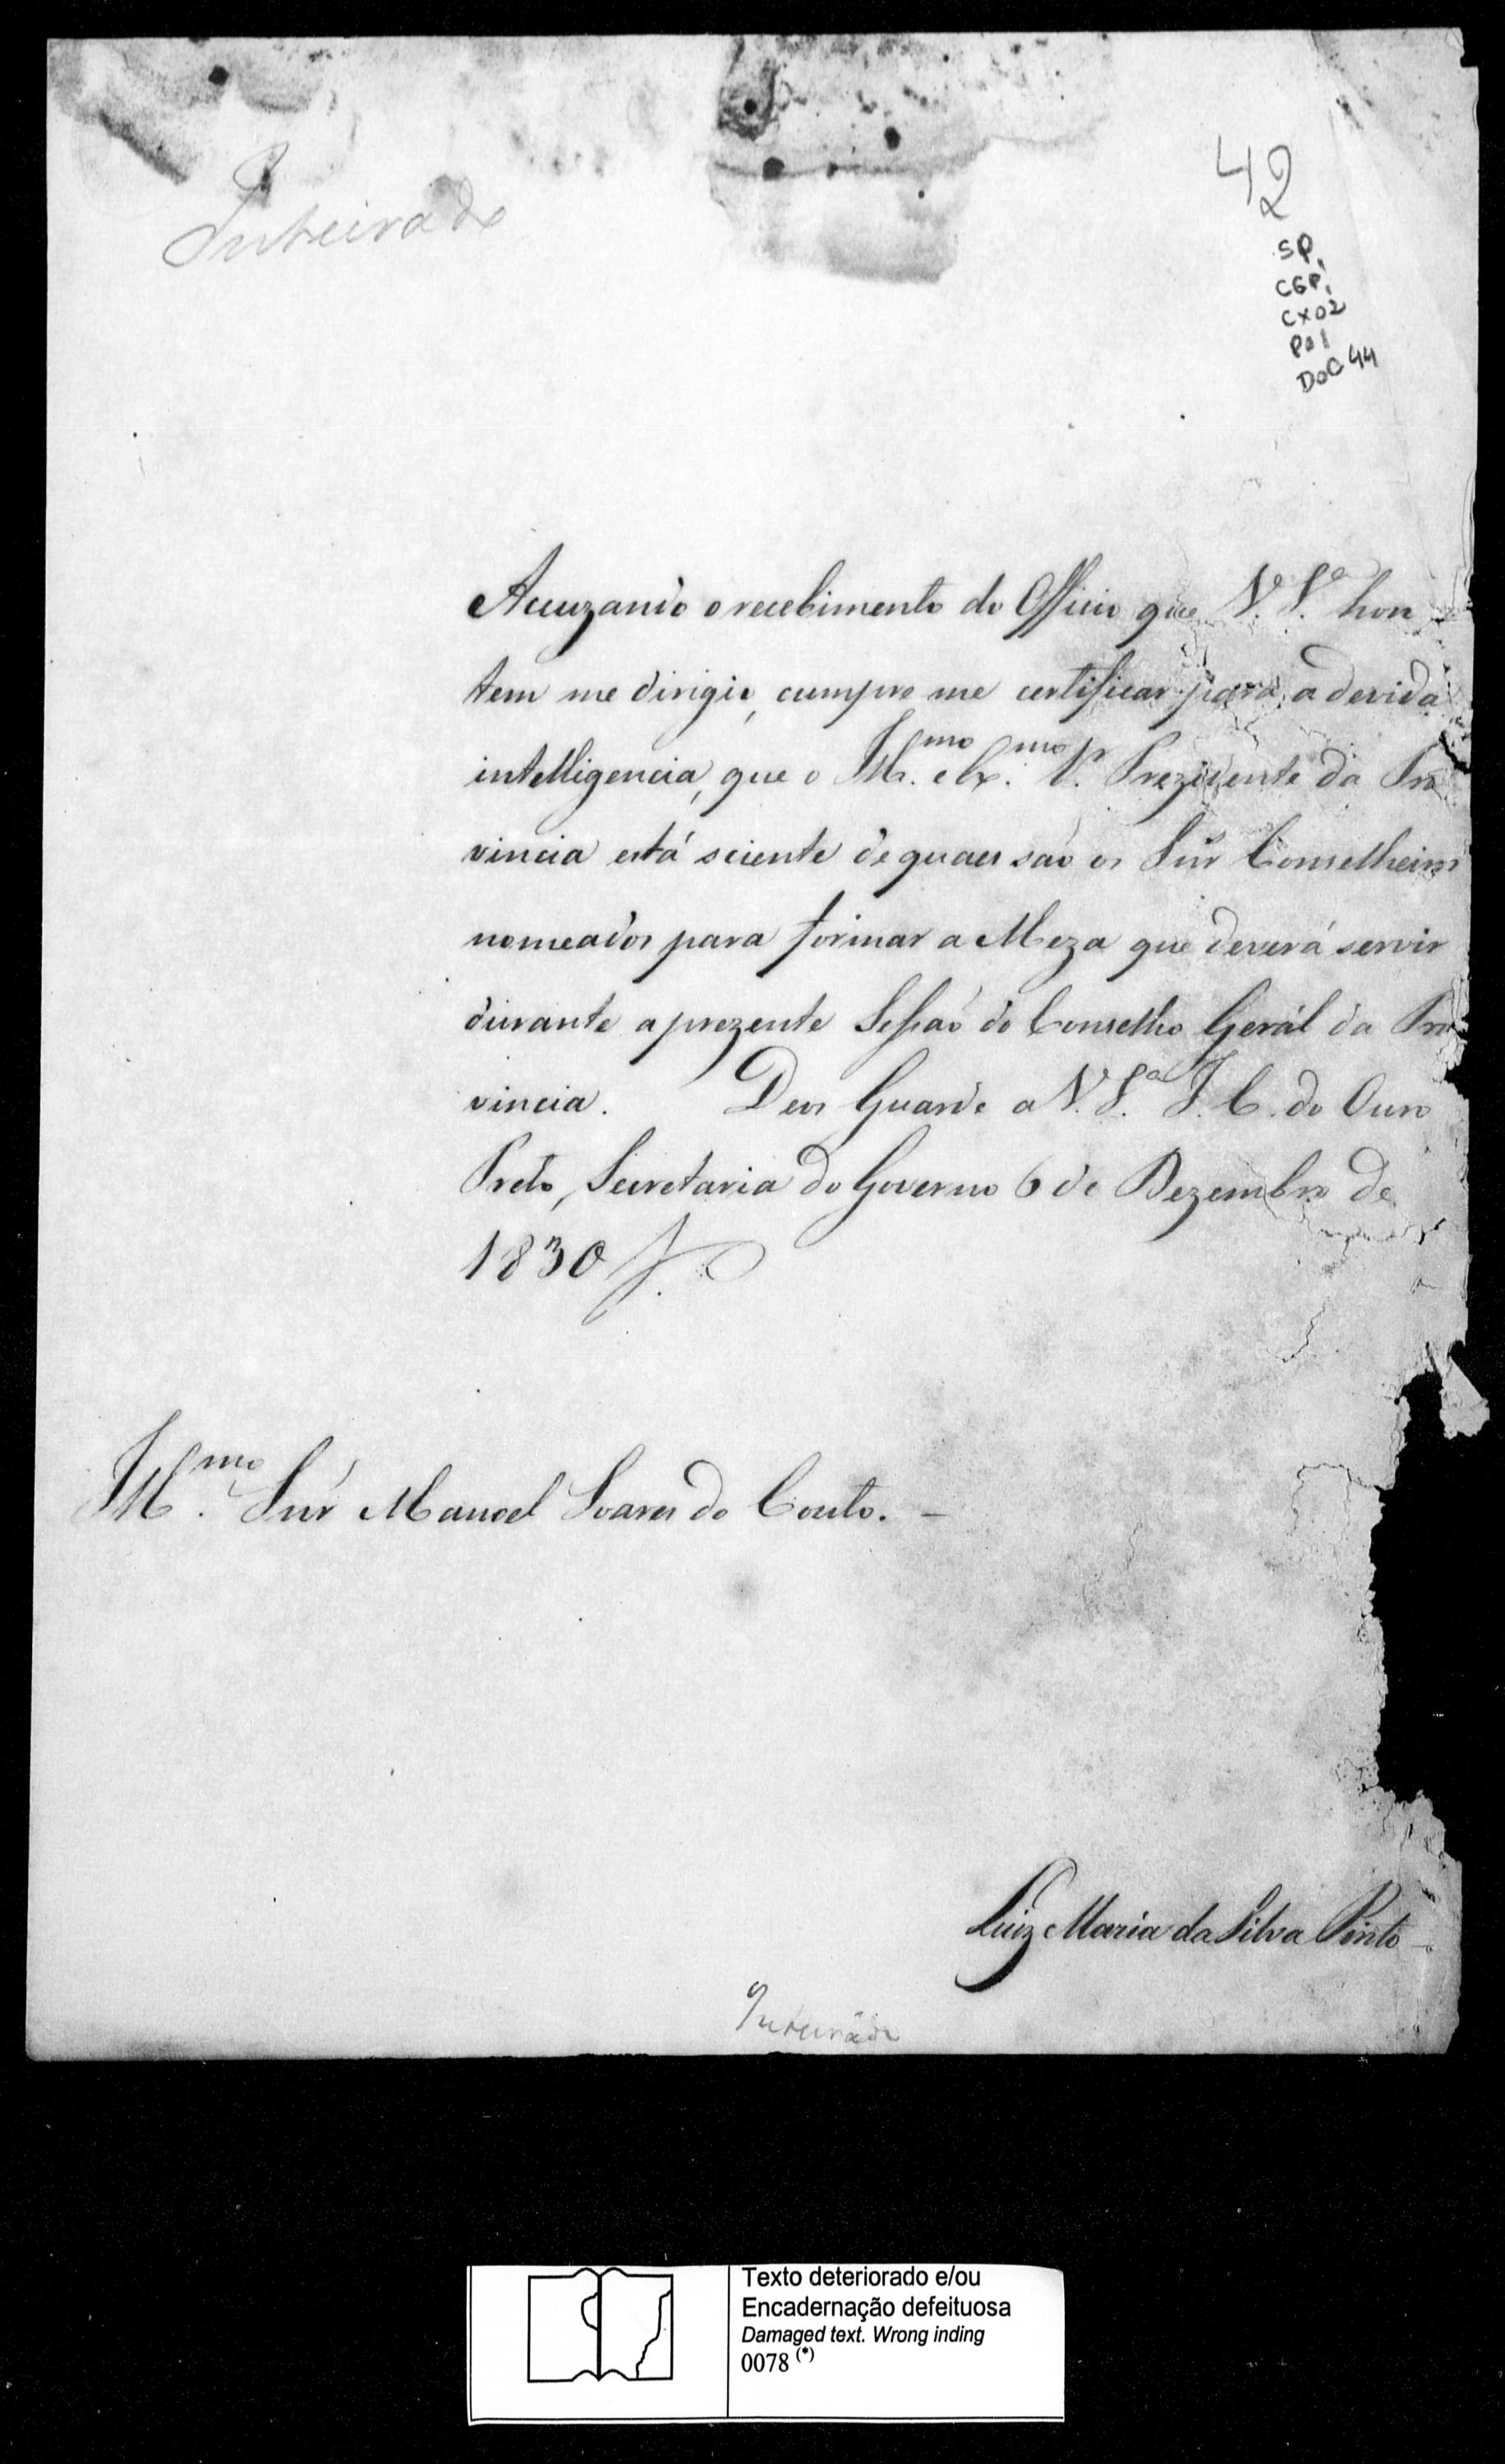 Inteirado
42
SP,
CGP,
CX02
P01
DOC 44
Accuzando o recebimento do Officio que V. S.ª hon
tem me dirigio, cumpre me certificar para a devida
intelligencia, que o Ill.mo e Ex.mo V. Prezidente da Pro
vincia está sciente de quaes são os Snr.es Conselheiros
nomeados para formar a Meza que deverá servir
durante a prezente Sessaõ do Conselho Gerál da Pro
vincia. Deos Guarde a V. S.ª I. C. do Ouro
Preto, Secretaria do Governo 6 de Dezembro de
1830
Ill.mo Snr. Manoel Soares do Couto. —
Luiz Maria da Silva Pinto
Inteirado
Texto deteriorado e/ou
Encadernação defeituosa
Damaged text. Wrong inding
0078 (*)